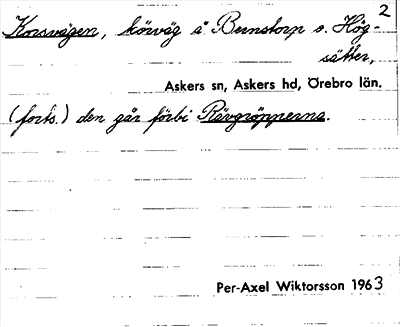 2
Korsvägen, körväg å Bernstorp o. Hög-
sätter,
Askers sn, Askers hd, Örebro län.
(forts.) den går förbi Rävgröpperna.
Per-Axel Wiktorsson 1963